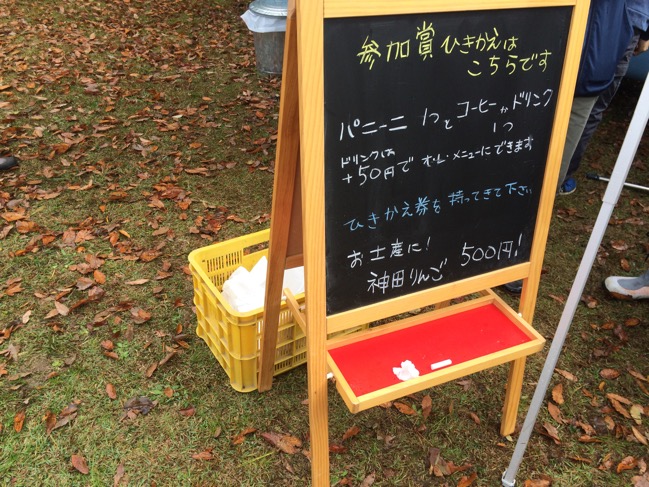 参加賞ひきかえは
こちらです
パニーニ 1つと コーヒーかドリンク
1つ
ドリンクは
+50円で オ・レ・メニューにできます
ひきかえ券を持ってきて下さい
お土産に!
神田りんご 500円!